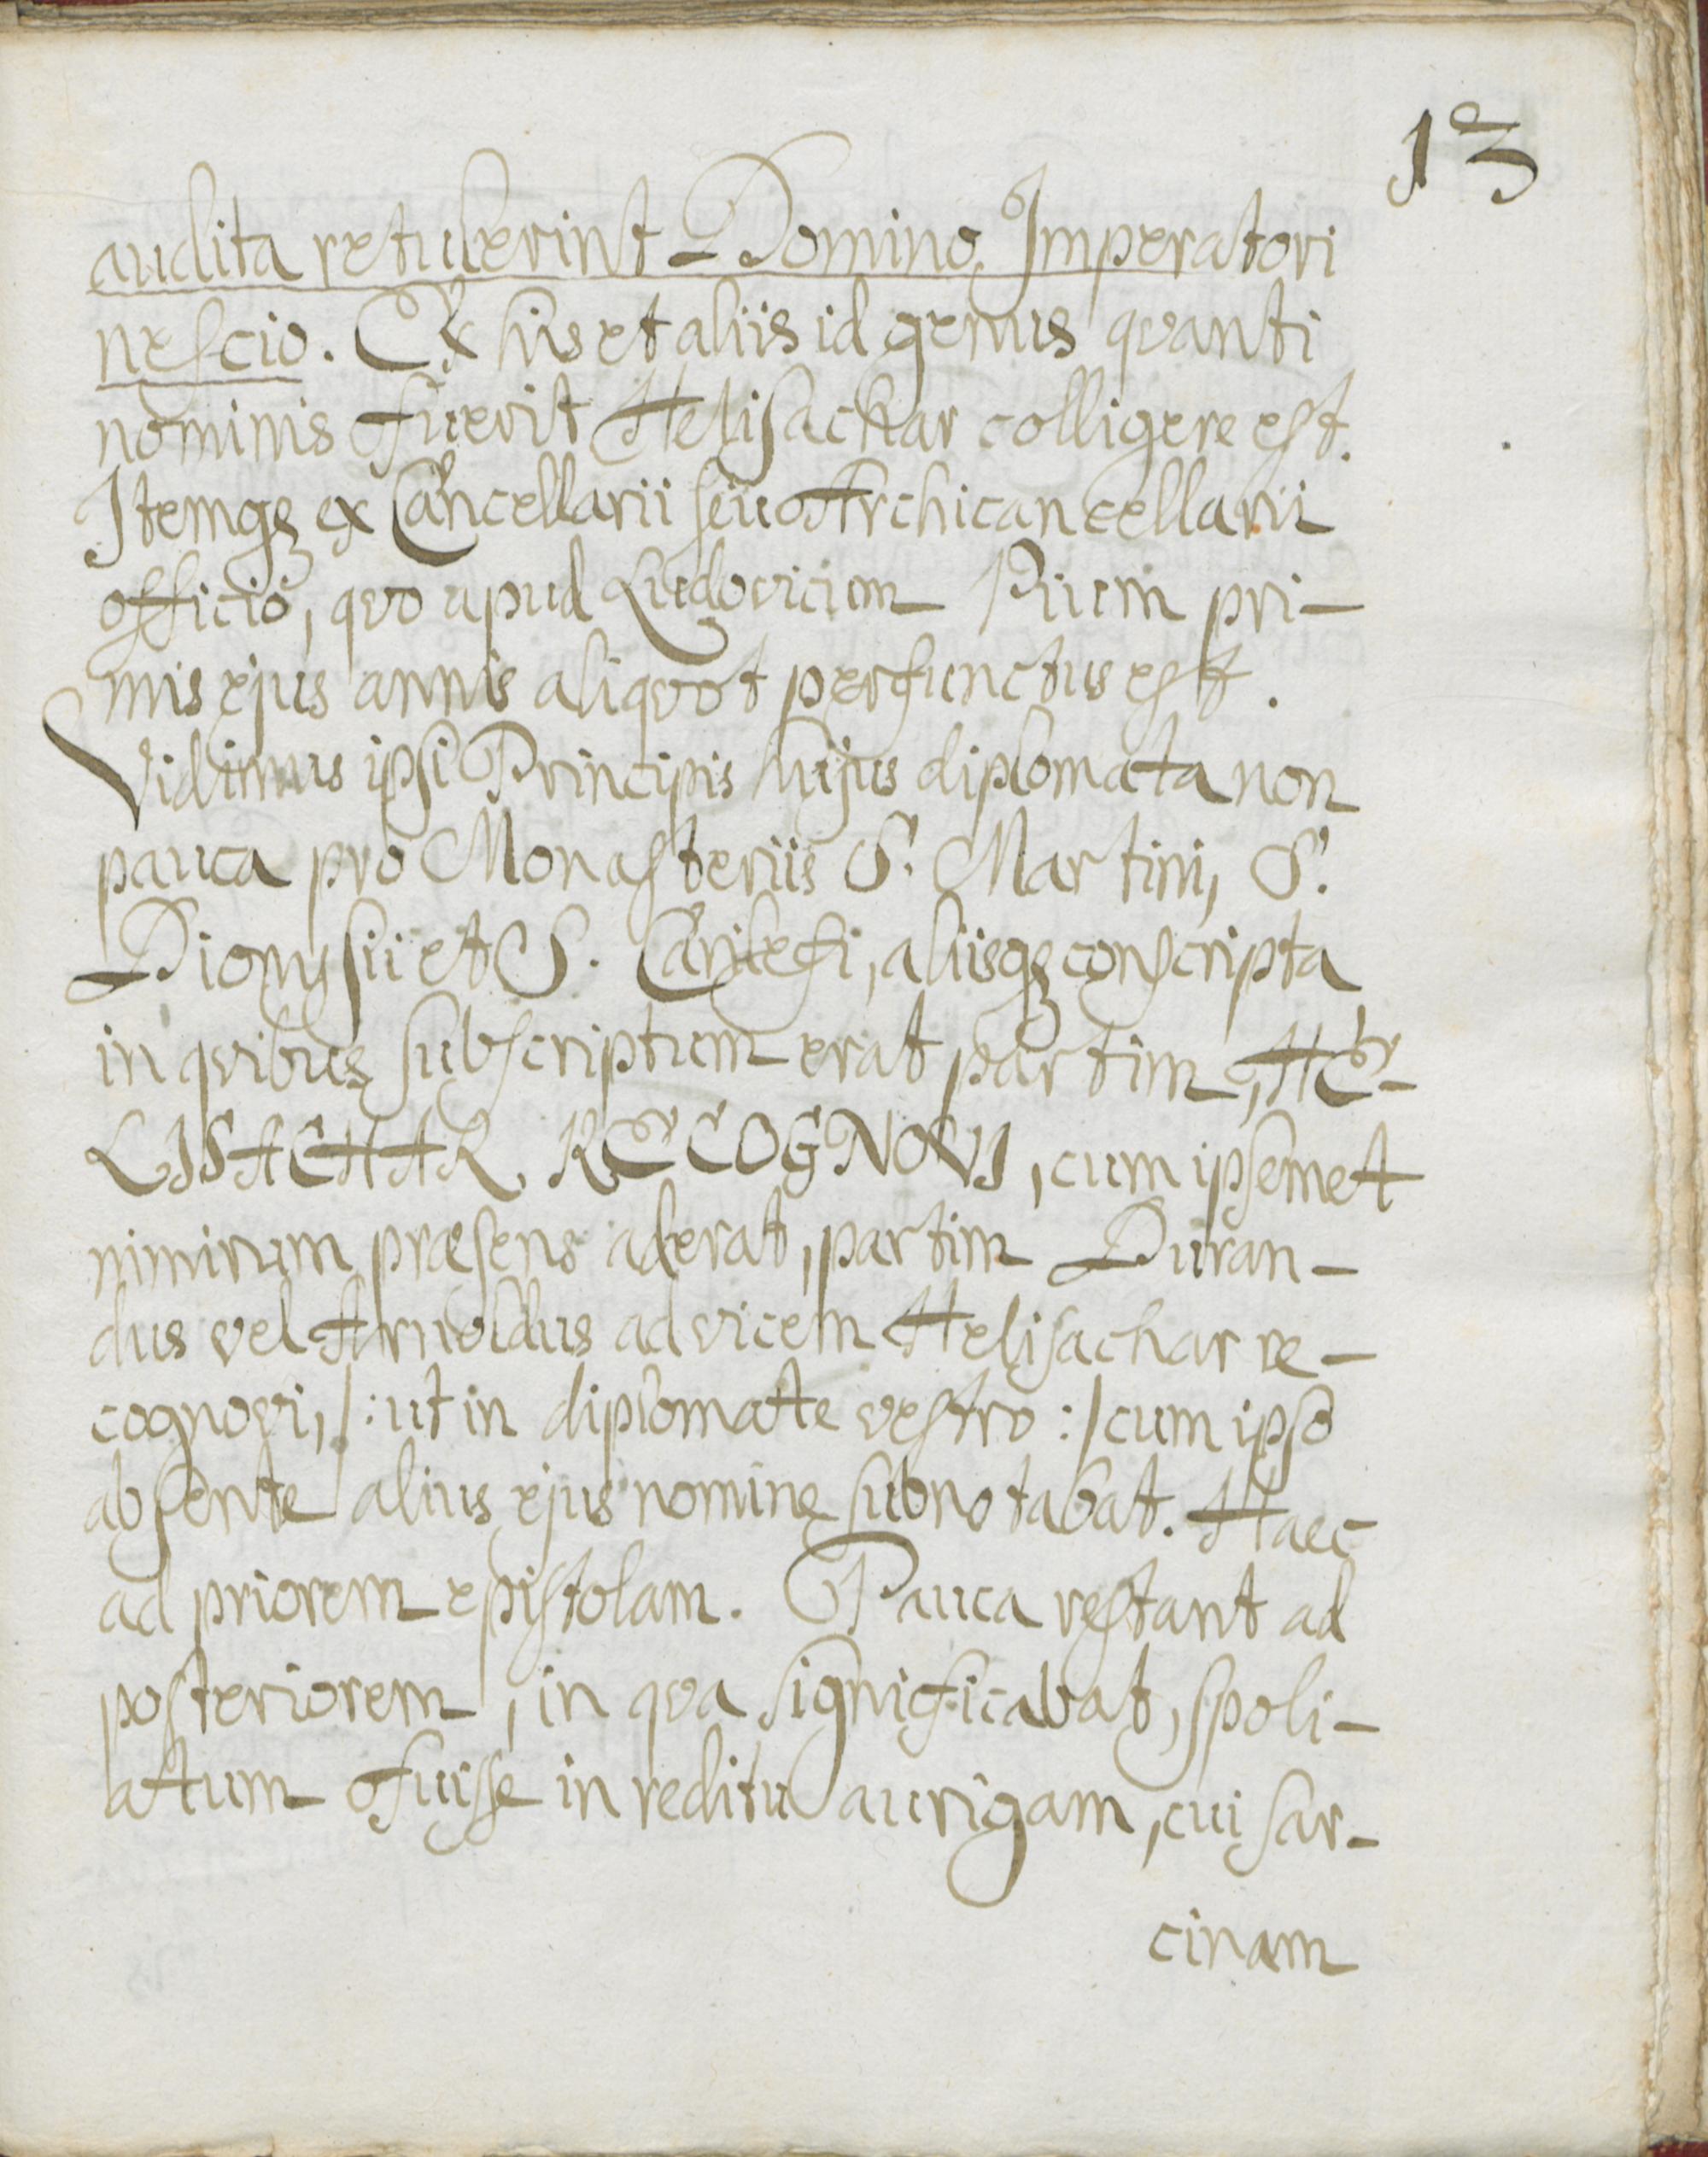 13
audita retulerint Domino Imperatori
nescio. Ex his et aliis id genus qvanti
nominis fuerit Helisachar colligere est.
Itemqȝ ex Cancellarii seu Archicancellarii
officio, qvo apud Ludovicum Pium pri-
mis ejus annis aliqvot perfunctus est.
Vidimus ipsi Principis hujus diplomata non
pauca pro Monasteriis S. Martini, S.
Dionysii et S. Carilefi, aliisqȝ conscripta
in qvibus subscriptum erat partim, HE-
LISACHAR RECOGNOVI, cum ipsemet
nimirum præsens aderat, partim Duran-
dus vel Arnoldus ad vicem Helisachar re-
cognovi, /: ut in diplomate vestro :/ cum ipso
absente alius ejus nomine subnotabat. Haec
ad priorem epistolam. Pauca restant ad
posteriorem, in qva significabat, spoli-
atum fuisse in reditu aurigam, cui sar-
cinam